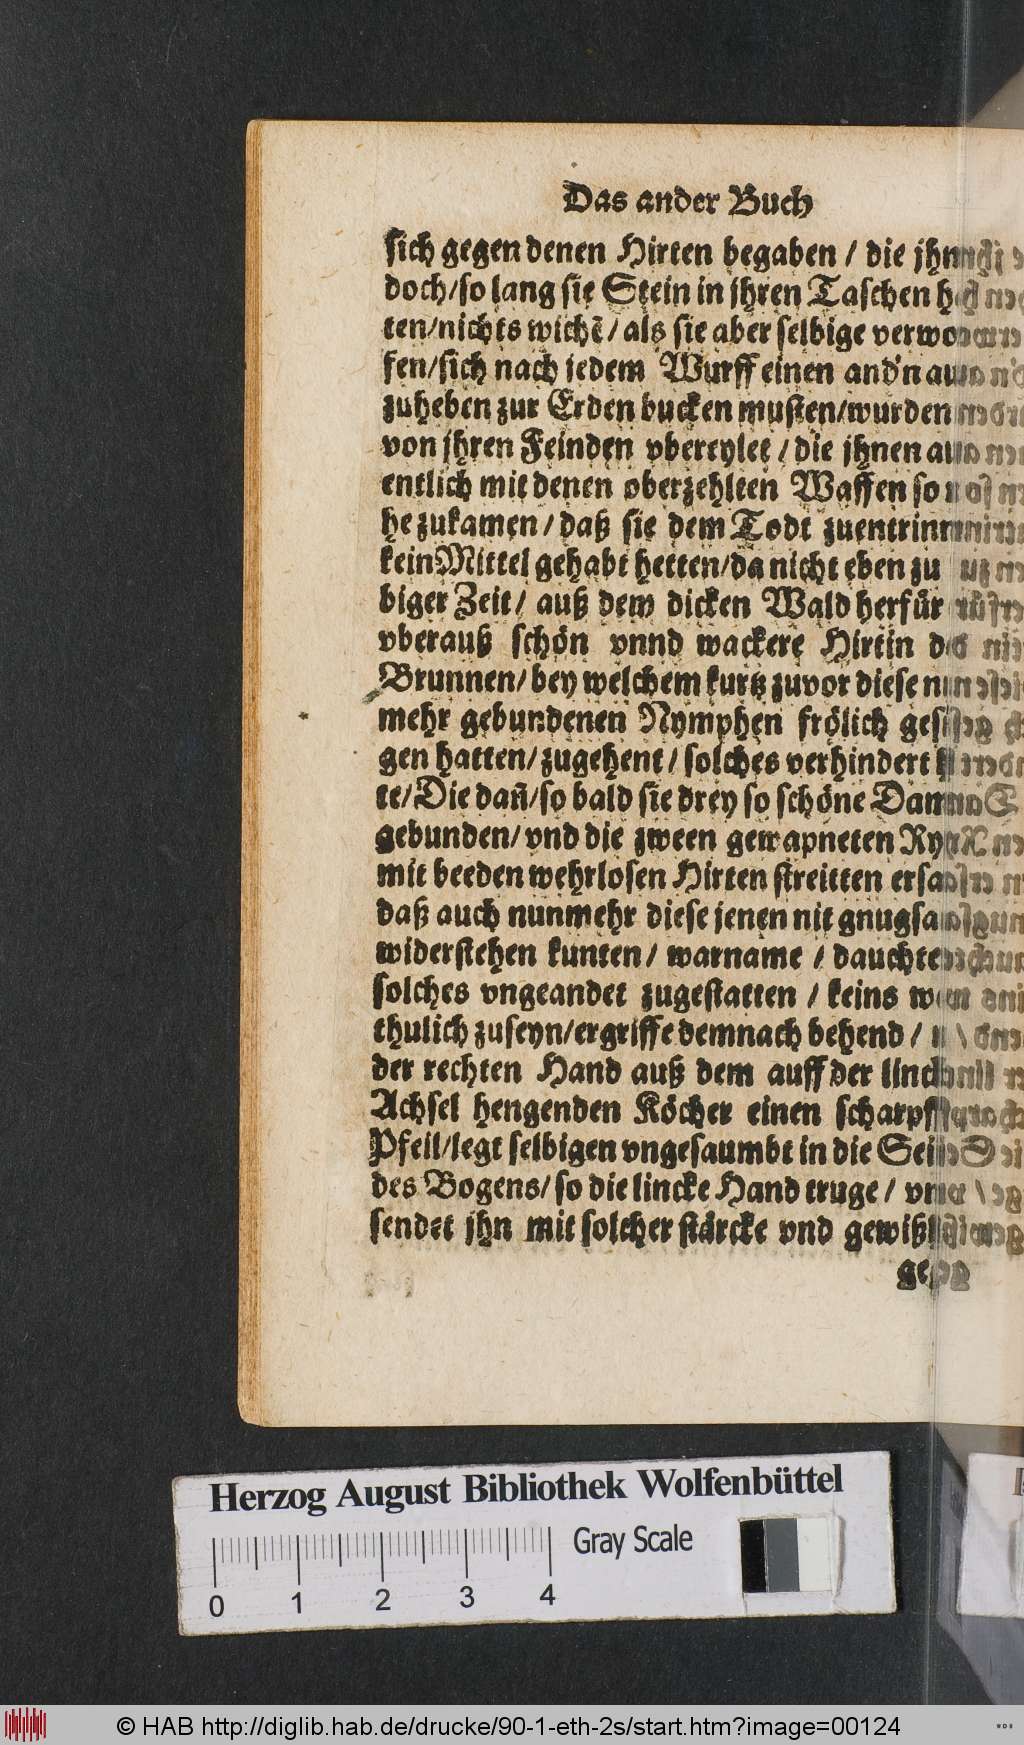 Das ander Buch
sich gegen denen Hirten begaben / die jhn
doch/so lang sie Stein in jhren Taschen
ten/nichts wichẽ / als sie aber selbige verwo
fen/sich nach jedem Wurff einen and'n
zuheben zur Erden bucken musten/wurden
von jhren Feinden vbereylet / die jhnen
entlich mit denen oberzehlten Waffen so
he zukamen / daß sie dem Todt zuentrin
kein Mittel gehabt hetten/da nicht eben zu
biger Zeit / auß dem dicken Wald herfür
vberauß schön vnnd wackere Hirtin
Brunnen/ bey welchem kurtz zuvor diese
mehr gebundenen Nymphen frölich
gen hatten/ zugehent / solches verhindert
te/ Die dañ/so bald sie drey so schöne
gebunden/ vnd die zween gewapneten
mit beeden wehrlosen Hirten streitten
daß auch nunmehr diese jenen nit
widerstehen kunten / warname / dauchte
solches vngeandet zugestatten / keins
thulich zuseyn/ergriffe demnach behend /
der rechten Hand auß dem auff der
Achsel hengenden Köcher einen
Pfeil/legt selbigen vngesaumbt in die
des Bogens/ so die lincke Hand truge /
sendet jhn mit solcher stärcke vnd
Herzog August Bibliothek Wolfenbüttel
Gray Scale
0 1 2 3 4
© HAB http://diglib.hab.de/drucke/90-1-eth-2s/start.htm?image=00124